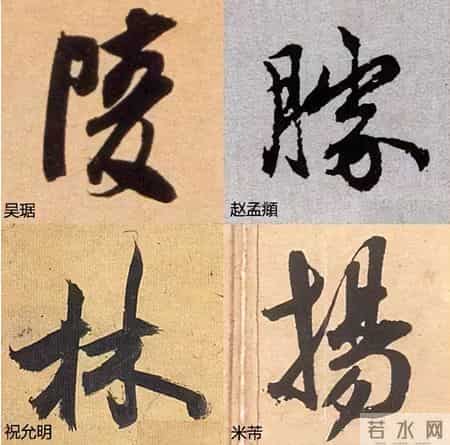 陵
吴琚
赵孟頫
林
祝允明
揚
米芾
若水网